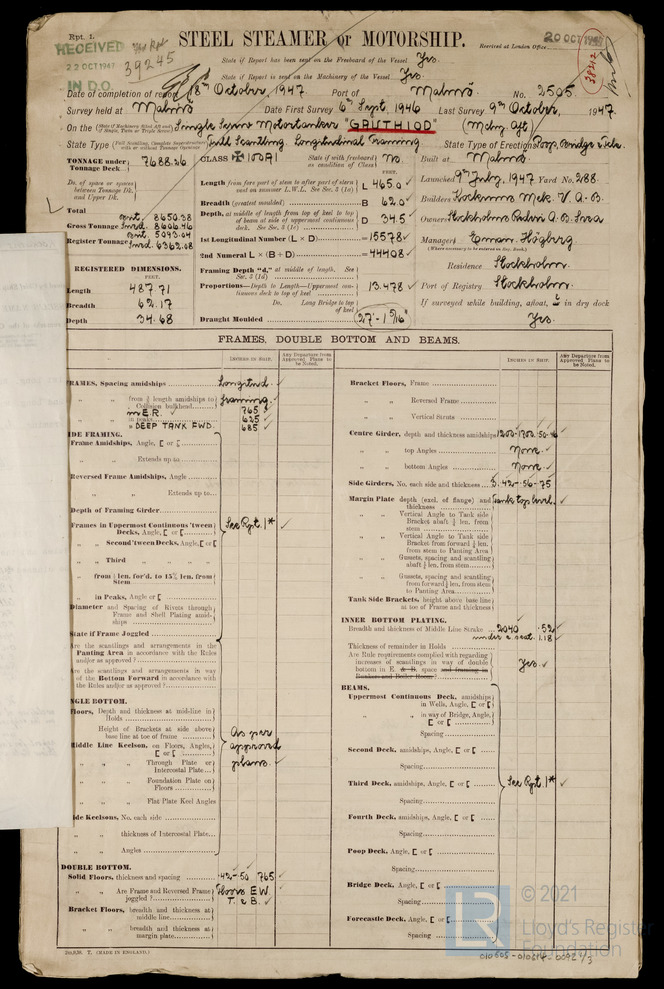 Rpt. 1.
STEEL STEAMER or MOTORSHIP.
RECEIVED
22 OCT 1947
IN D.O.
39245
Received at London Office
20 OCT 1947
State if Report has been sent on the Freeboard of the Vessel Yes.
State if Report is sent on the Machinery of the Vessel Yes.
Date of completion of report 18th October, 1947 Port of Malmö No. 2505
Survey held at Malmö Date First Survey 6th Sept. 1946 Last Survey 9th October, 1947.
On the Single Screw Motortanker "GAUTHIOD" (Mchy. Aft)
State Type Full Scantling. Longitudinal Framing State Type of Erections Poop, Bridge & Fcle.
TONNAGE under Tonnage Deck 7688.26
Do. of space or spaces between Tonnage Dk. and Upper Dk.
Total
Gross Tonnage 8650.38
8606.46
Register Tonnage 5093.04
6362.68
REGISTERED DIMENSIONS.
FEET.
Length 487.71
Breadth 62.17
Depth 34.68
CLASS ✠ 100A1 State if with freeboard as condition of Class No.
FEET.
Length from fore part of stem to after part of stern post on summer L.W.L. See Sec. 3 (1a) L 465.0
Breadth (greatest moulded) B 62.0
Depth, at middle of length from top of keel to top of beam at side of uppermost continuous deck. See Sec. 3 (1c) D 34.5
1st Longitudinal Number (L × D) = 15578
2nd Numeral L × (B + D) = 44408
Framing Depth "d," at middle of length. See Sec. 3 (1d)
Proportions—Depth to Length—Uppermost continuous deck to top of keel 13.478
Do. Long Bridge to top of keel
Draught Moulded 27'-1 5/16"
Built at Malmö.
Launched 9th July, 1947 Yard No. 288.
Builders Kockums Mek. V. A-B.
Owners Stockholms Rederi A-B. Svea
Managers Eman. Högberg.
(Where necessary to be entered in Reg. Book.)
Residence Stockholm.
Port of Registry Stockholm.
If surveyed while building, afloat, or in dry dock
Yes.
FRAMES, DOUBLE BOTTOM AND BEAMS.
INCHES IN SHIP.
Any Departure from Approved Plans to be Noted.
INCHES IN SHIP.
Any Departure from Approved Plans to be Noted.
FRAMES, Spacing amidships Longitnd.
" " from ⅗ length amidships to Collision bulkhead framing.
in E.R. 765
" " in peaks 625
" DEEP TANK FWD. 685
SIDE FRAMING.
Frame Amidships, Angle, [ or [
" " Extends up to
Reversed Frame Amidships, Angle
" " " Extends up to
Depth of Framing Girder
Frames in Uppermost Continuous 'tween Decks, Angle, [ or [ See Rpt. 1*
" " Second 'tween Decks, Angle, [ or [
" " Third " "
" " from ⅕ len. for'd. to 15% len. from Stem
" " in Peaks, Angle or [
Diameter and Spacing of Rivets through Frame and Shell Plating amidships
State if Frame Joggled
Are the scantlings and arrangements in the Panting Area in accordance with the Rules and/or as approved?
Are the scantlings and arrangements in way of the Bottom Forward in accordance with the Rules and/or as approved?
SINGLE BOTTOM.
Floors, Depth and thickness at mid-line in Holds
Height of Brackets at side above base line at toe of frame
Middle Line Keelson, on Floors, Angles, [ or [
" " Through Plate or Intercostal Plate
" " Foundation Plate on Floors
" " Flat Plate Keel Angles
As per approved plans.
Side Keelsons, No. each side
" " thickness of Intercostal Plate
" " Angles
DOUBLE BOTTOM.
Solid Floors, thickness and spacing .42-.50 765
" " Are Frame and Reversed Frame joggled? Floors E.W. T. & B.
Bracket Floors, breadth and thickness at middle line
" " breadth and thickness at margin plate
Bracket Floors, Frame
" " Reversed Frame
" " Vertical Struts
Centre Girder, depth and thickness amidships
" " top Angles None.
" " bottom Angles None.
Side Girders, No. each side and thickness 5. .42-.56-.75
Margin Plate depth (excl. of flange) and thickness Tank top level.
" " Vertical Angle to Tank side Bracket abaft ¼ len. from stem
" " Vertical Angle to Tank side Bracket from forward ¼ len. from stem to Panting Area
" " Gussets, spacing and scantling abaft ¼ len. from stem
" " Gussets, spacing and scantling from forward ¼ len. from stem to Panting Area
Tank Side Brackets, height above base line at toe of Frame and thickness
INNER BOTTOM PLATING.
Breadth and thickness of Middle Line Strake 2040 .52
under e. seat. 1.18
Thickness of remainder in Holds
Are Rule requirements complied with regarding increases of scantlings in way of double bottom in E. & B. space and framing in Bunkers and Boiler Room? Yes
BEAMS.
Uppermost Continuous Deck, amidships in Wells, Angle, [ or [
" " in way of Bridge, Angle, [ or [
Spacing
Second Deck, amidships, Angle, [ or [
Spacing
Third Deck, amidships, Angle, [ or [ See Rpt. 1*
Spacing
Fourth Deck, amidships, Angle, [ or [
Spacing
Poop Deck, Angle, [ or [
Spacing
Bridge Deck, Angle, [ or [
Spacing
Forecastle Deck, Angle, [ or [
Spacing
(MADE IN ENGLAND.)
© 2021
Lloyd's Register
Foundation